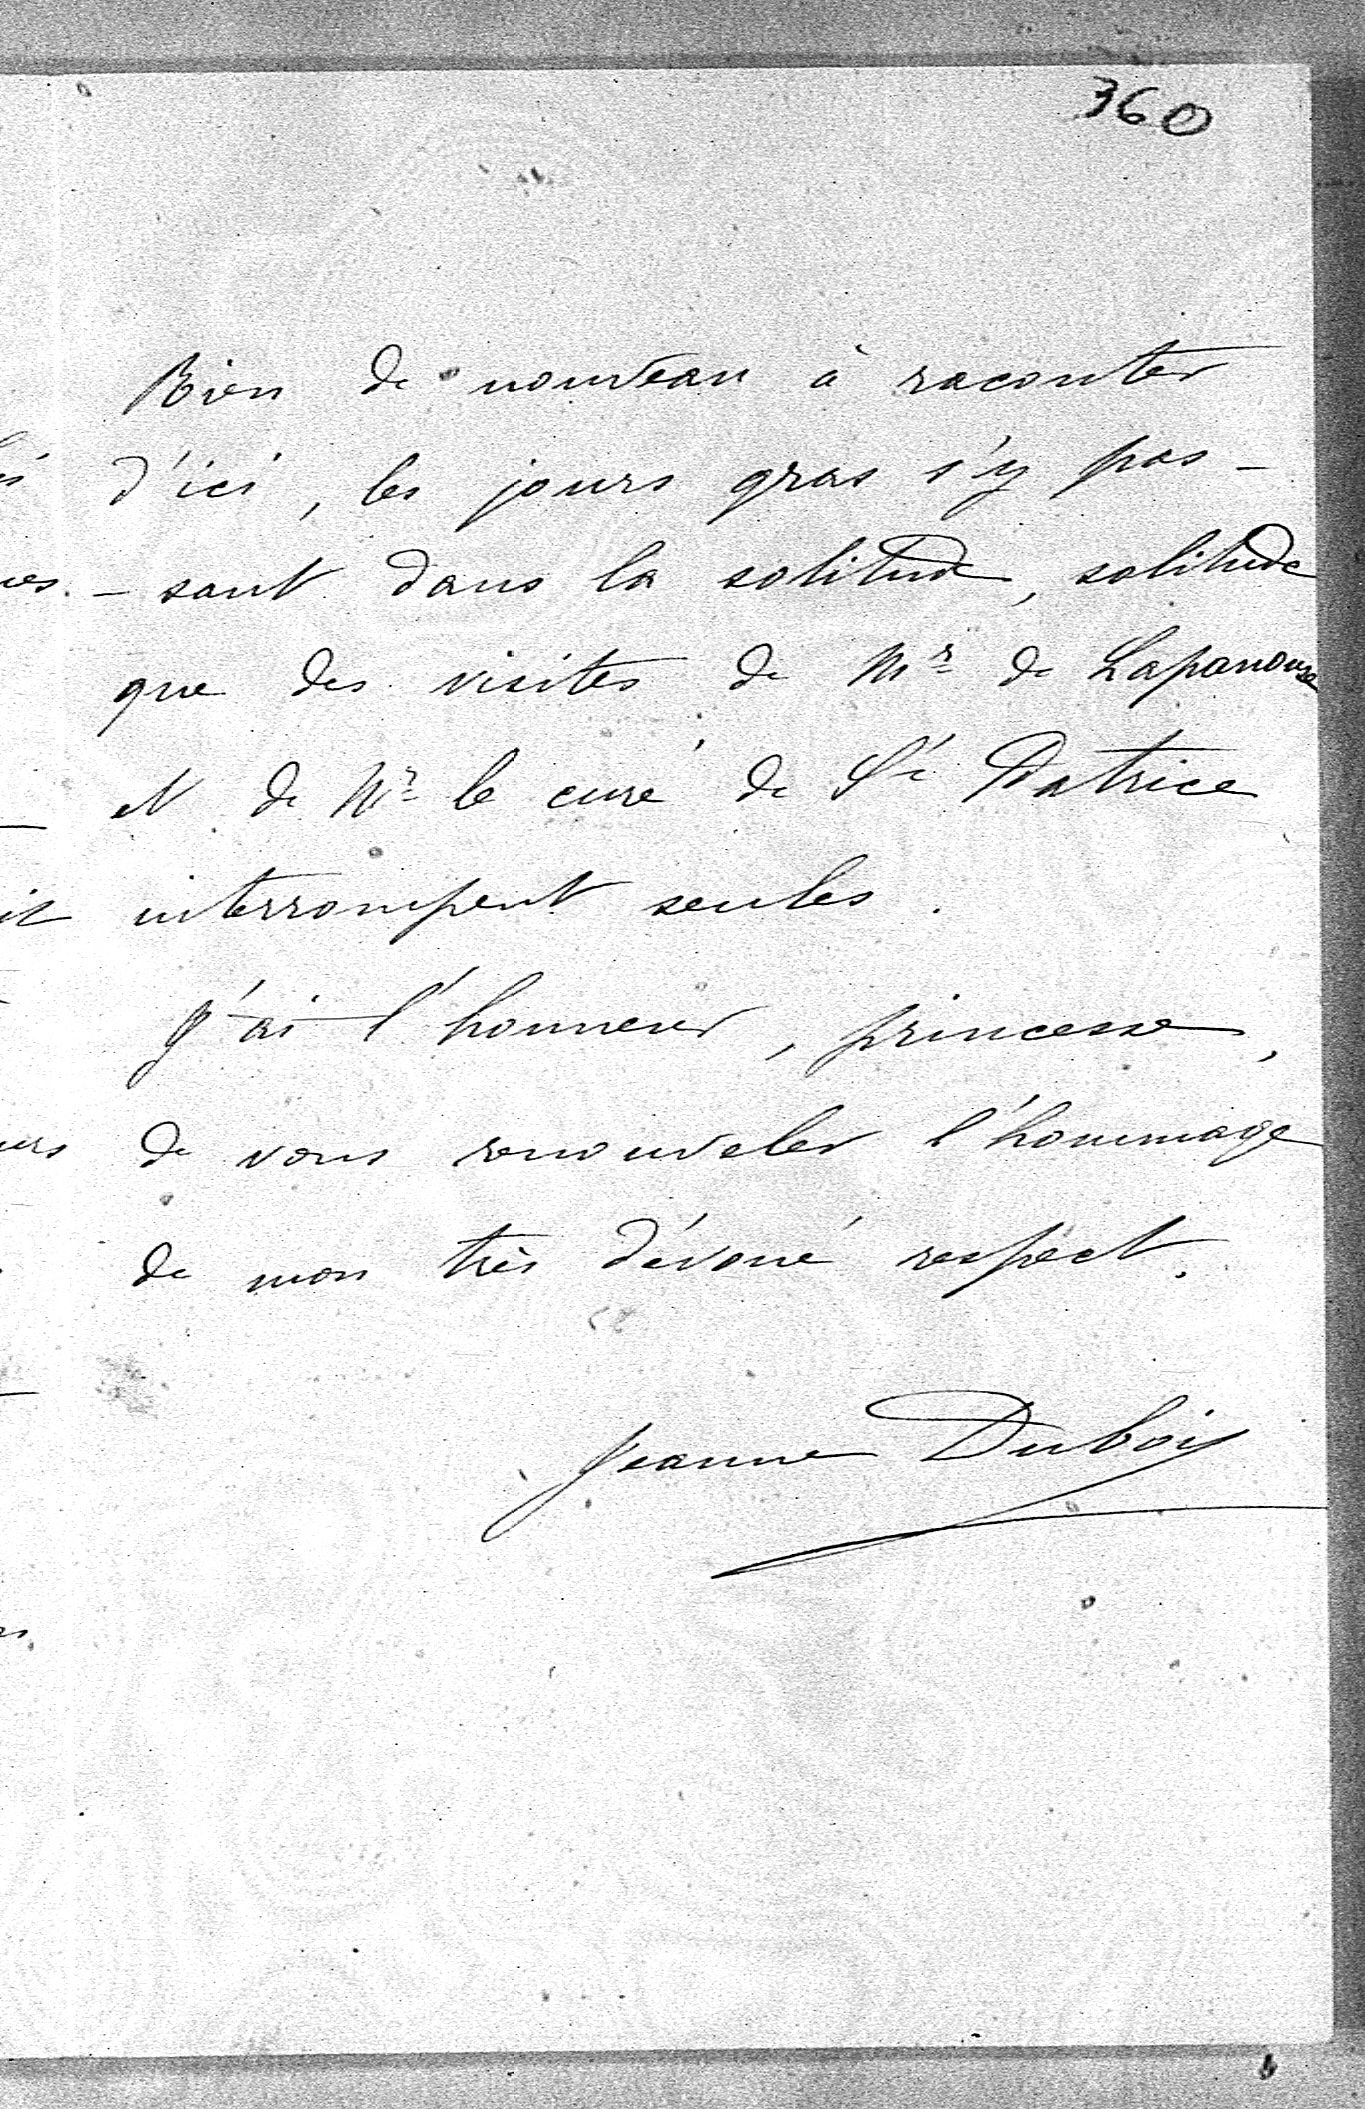 360
Rien de nouveau à raconter
d'ici, les jours gras s'y pas-
-sent dans la solitude, solitude
que des visites de Mr de Lapanouse
et de Mr le curé de St Patrice
interrompent seules.
J'ai l'honneur, princesse,
de vous renouveler l'hommage
de mon très dévoué respect.
Jeanne Dubois